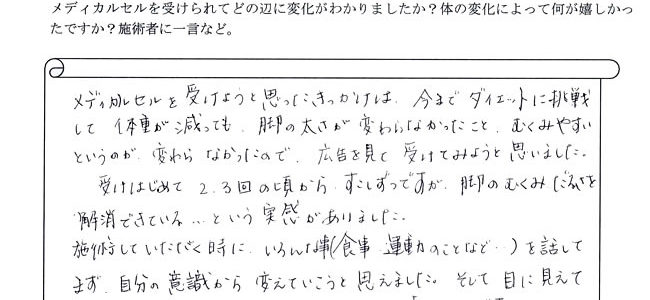 メディカルセルを受けられてどの辺に変化がわかりましたか？体の変化によって何が嬉しかっ
たですか？施術者に一言など。
メディカルセルを受けようと思ったきっかけは、今までダイエットに挑戦
して体重が減っても、脚の太さが変わらなかったこと、むくみやすい
というのが、変わらなかったので、広告を見て受けてみようと思いました。
受けはじめて2.3回の頃から、すこしずつですが、脚のむくみ、だるさを
解消できている…という実感がありました。
施術していただく時に、いろんな事(食事、運動のことなど…)を話して
まず、自分の意識から変えていこうと思えました。そして目に見えて